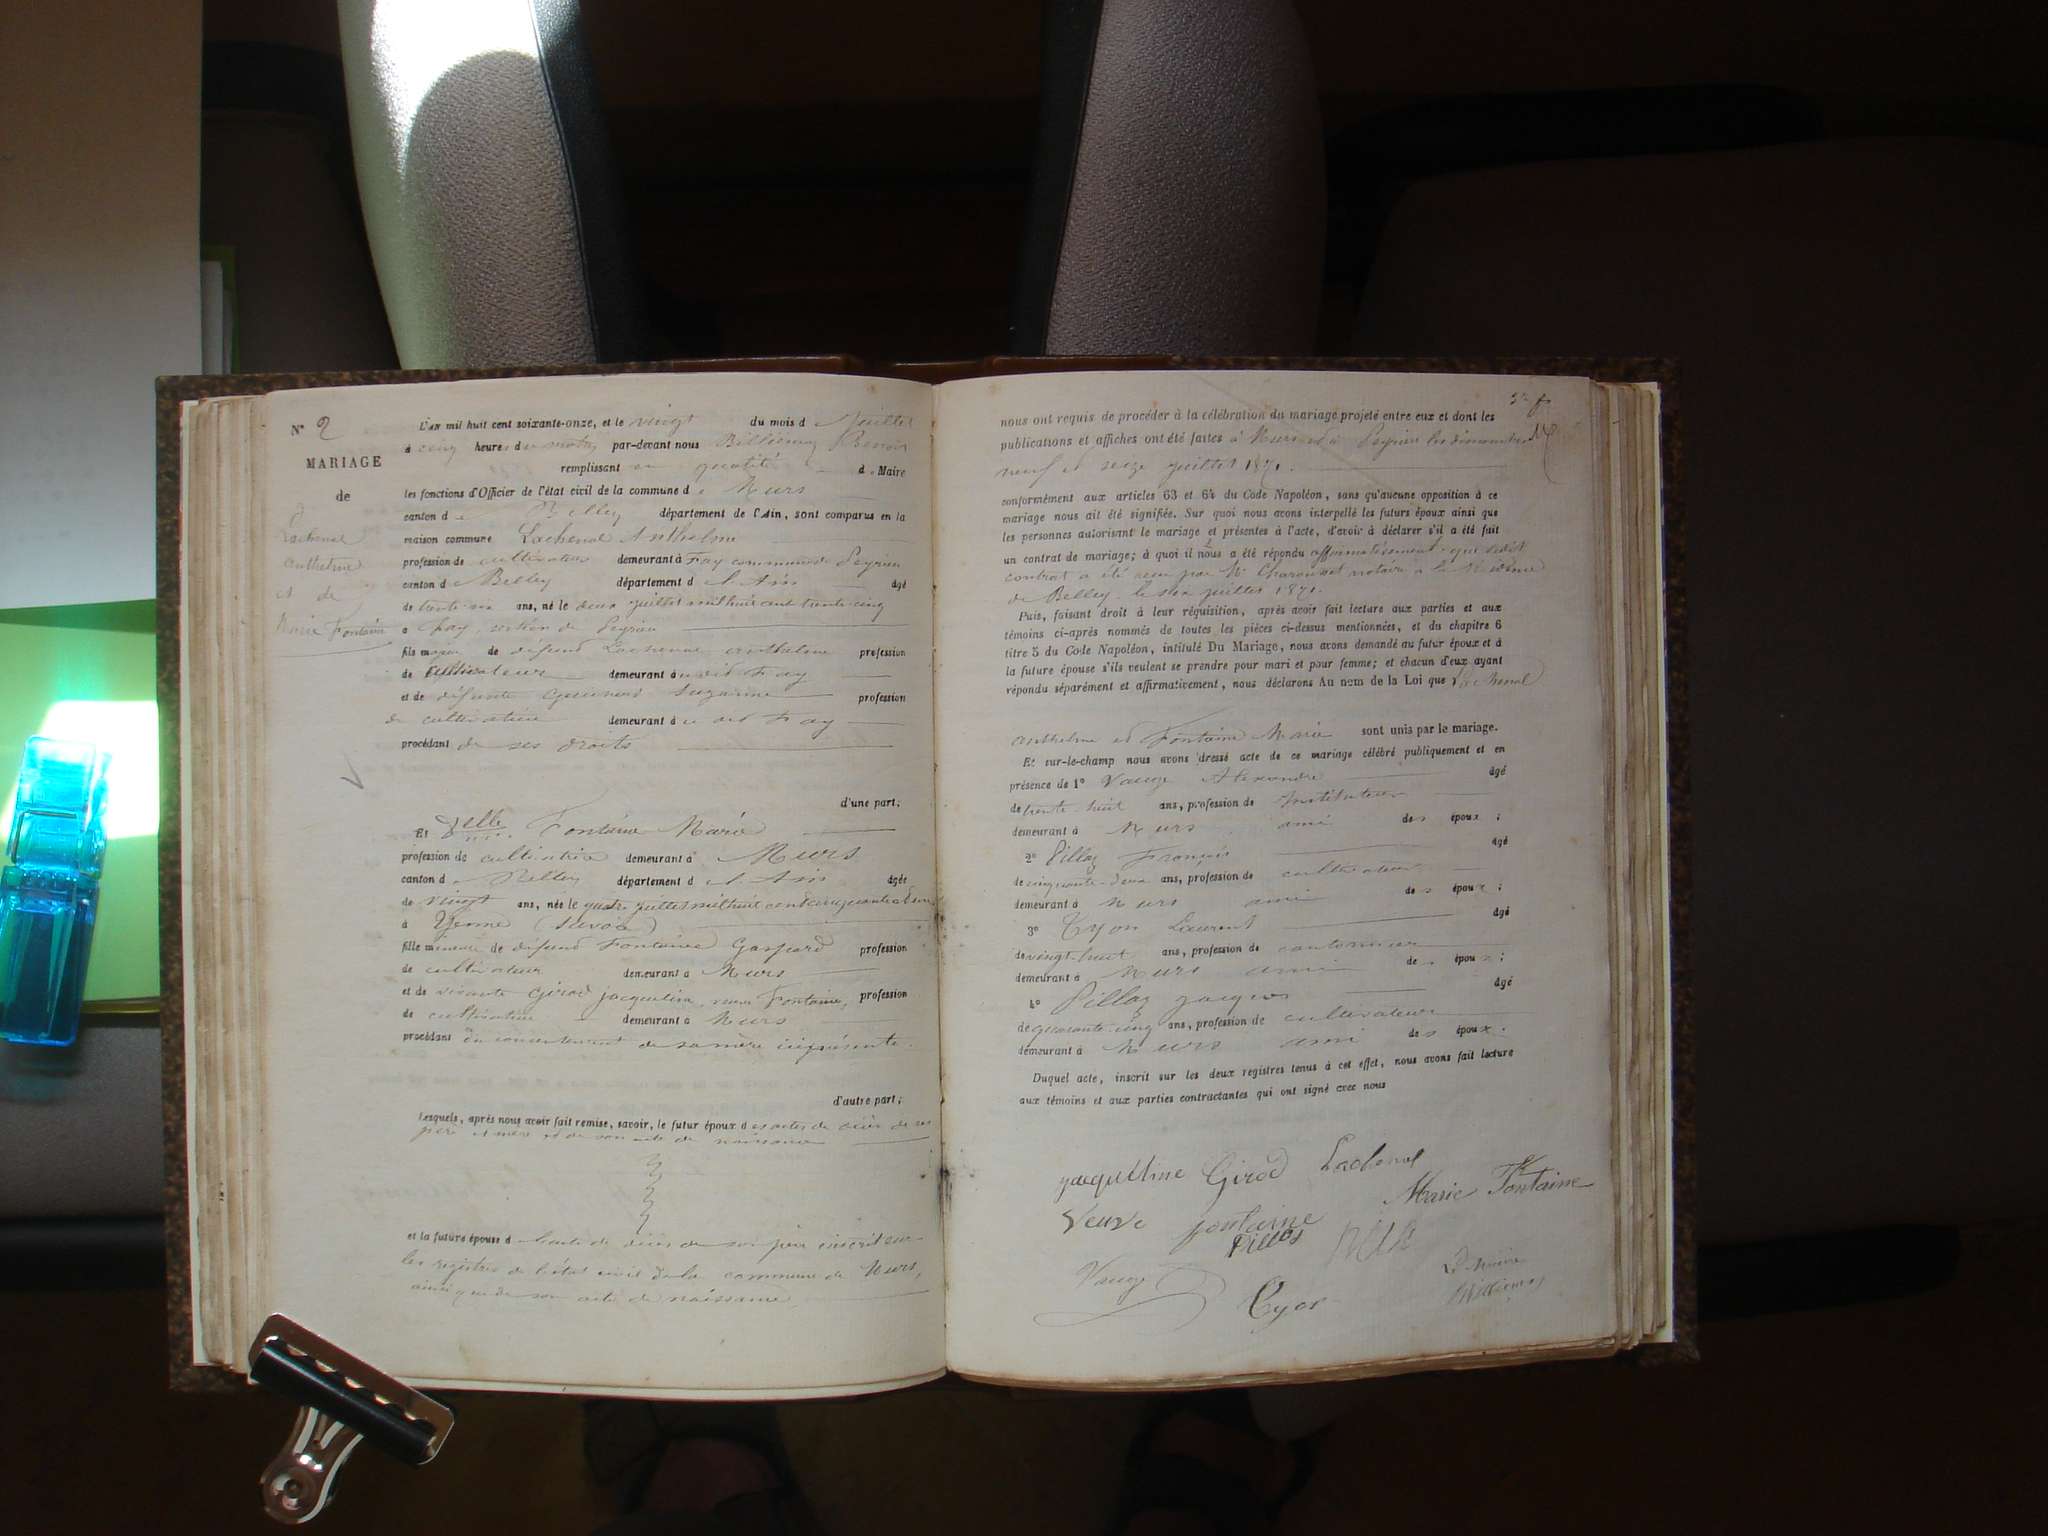 N° 2
MARIAGE
de
Lachenal
anthelme
et de
Marie Fontaine
L'AN mil huit cent soixante-onze, et le vingt du mois d Juillet
à cinq heures du matin par-devant nous Billiemaz Benoit
remplissant en qualité de Maire
les fonctions d'Officier de l'état civil de la commune de Murs
canton de Belley département de l'Ain, sont comparus en la
maison commune Lachenal Anthelme
profession de cultivateur demeurant à Fay commune de Peyrieu
canton de Belley département de l'Ain âgé
de trente-six ans, né le deux juillet mil huit cent trente cinq
à Fay, section de Peyrieu
fils majeur de défunt Lachenal anthelme profession
de cultivateur demeurant au dit Fay
et de défunte Suzanne profession
de cultivatrice demeurant à au dit Fay
procédant de ses droits
d'une part;
Et Delle Fontaine Marie
profession de cultivatrice demeurant à Murs
canton de Belley département de l'Ain âgée
de vingt ans, née le quatre juillet mil huit cent cinquante et un
à Yenne (Savoie)
fille mineure de défunt Fontaine Gaspard profession
de cultivateur demeurant à Murs
et de vivante Girod jacqueline, veuve Fontaine, profession
de cultivatrice demeurant à Murs
procédant du consentement de sa mère ici présente.
d'autre part;
Lesquels, après nous avoir fait remise, savoir, le futur époux des actes de décès de ses
père et mère et de son acte de naissance
et la future épouse de l'acte de décès de son père inscrit sur
les registres de l'état civil de la commune de Murs,
ainsi que de son acte de naissance
nous ont requis de procéder à la célébration du mariage projeté entre eux et dont les
publications et affiches ont été faites à Murs et à Peyrieu les dimanches
neuf et seize juillet 1871.
conformément aux articles 63 et 64 du Code Napoléon, sans qu'aucune opposition à ce
mariage nous ait été signifiée. Sur quoi nous avons interpellé les futurs époux ainsi que
les personnes autorisant le mariage et présentes à l'acte, d'avoir à déclarer s'il a été fait
un contrat de mariage; à quoi il nous a été répondu affirmativement que ledit
contrat a été reçu par Me notaire à la résidence
de Belley, le six juillet 1871.
Puis, faisant droit à leur réquisition, après avoir fait lecture aux parties et aux
témoins ci-après nommés de toutes les pièces ci-dessus mentionnées, et du chapitre 6
titre 5 du Code Napoléon, intitulé Du Mariage, nous avons demandé au futur époux et à
la future épouse s'ils veulent se prendre pour mari et pour femme; et chacun d'eux ayant
répondu séparément et affirmativement, nous déclarons Au nom de la Loi que Lachenal
anthelme et Fontaine Marie sont unis par le mariage.
Et sur-le-champ nous avons dressé acte de ce mariage célébré publiquement et en
présence de 1° Vauge Alexandre âgé
de trente-huit ans, profession de Instituteur
demeurant à Murs ami des époux;
2° Pillaz François âgé
de cinquante-deux ans, profession de cultivateur
demeurant à Murs ami des époux;
3° Tyon Laurent âgé
de vingt-huit ans, profession de cantonnier
demeurant à Murs ami des époux;
4° Pillaz jacques âgé
de quarante-cinq ans, profession de cultivateur
demeurant à Murs ami des époux.
Duquel acte, inscrit sur les deux registres tenus à cet effet, nous avons fait lecture
aux témoins et aux parties contractantes qui ont signé avec nous
jacqueline Girod Lachenal
Marie Fontaine
Veuve fontaine
Vauge
Tyon
Le Maire
Billiemaz